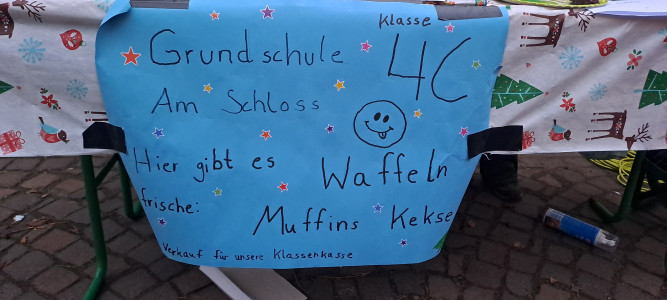 Klasse
Grundschule 4C
Am Schloss
Hier gibt es Waffeln
frische:
Muffins Kekse
Verkauf für unsere Klassenkasse